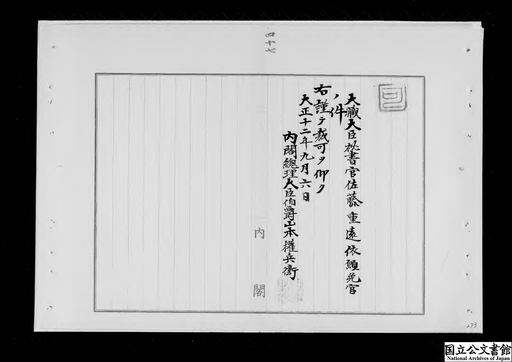 四十七
大藏大臣祕書官佐藤重遠依願免官
ノ件
右謹テ裁可ヲ仰ク
大正十二年九月六日
内閣總理大臣伯爵山本權兵衛
内閣
国立公文書館
National Archives of Japan